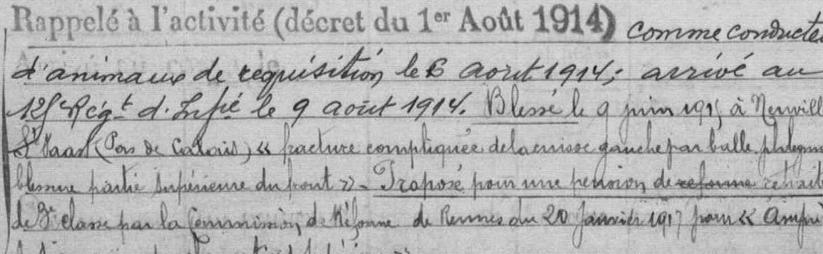 Rappelé à l'activité (décret du 1er Août 1914) comme conducteu
d'animaux de requisition le 6 aout 1914; arrivé au
Régt d'Infie le 9 aout 1914. Blessé le 9 juin 1915 à Neuvill
St Vaast (Pas de Calais) « fracture compliquée de la cuisse gauche par balle
blessure partie supérieure du front » - Proposé pour une pension de reforme retrait
de classe par la Commission de Réforme de Rennes du 20 Janvier 1917 pour « Ampu